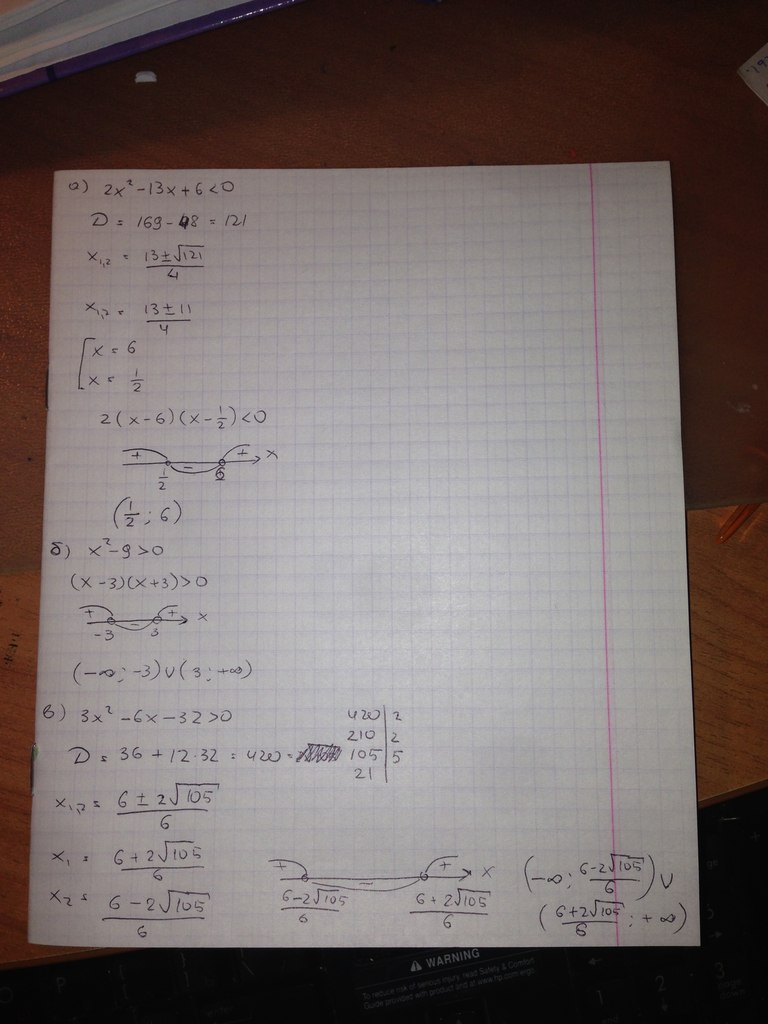 а) 2x² - 13x + 6 < 0
D = 169 - 48 = 121
x₁,₂ = (13 ± √121)/4
x₁,₂ = (13 ± 11)/4
[ x = 6
x = 1/2
2(x - 6)(x - 1/2) < 0
+ - + x
1/2 6
(1/2; 6)
б) x² - 9 > 0
(x - 3)(x + 3) > 0
+ - + x
-3 3
(-∞; -3) ∪ (3; +∞)
в) 3x² - 6x - 32 > 0
D = 36 + 12·32 = 420 =
420 | 2
210 | 2
105 | 5
21 |
x₁,₂ = (6 ± 2√105)/6
x₁ = (6 + 2√105)/6
x₂ = (6 - 2√105)/6
+ - + x
(6 - 2√105)/6 (6 + 2√105)/6
(-∞; (6 - 2√105)/6) ∪
((6 + 2√105)/6; +∞)
WARNING
To reduce risk of serious injury, read Safety & Comfort
Guide provided with product and at www.hp.com/ergo